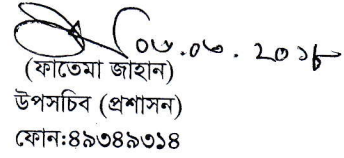 ০৬.০৬.২০১৮
(ফাতেমা জাহান)
উপসচিব (প্রশাসন)
ফোন:৪৯৩৪৯৩১৪